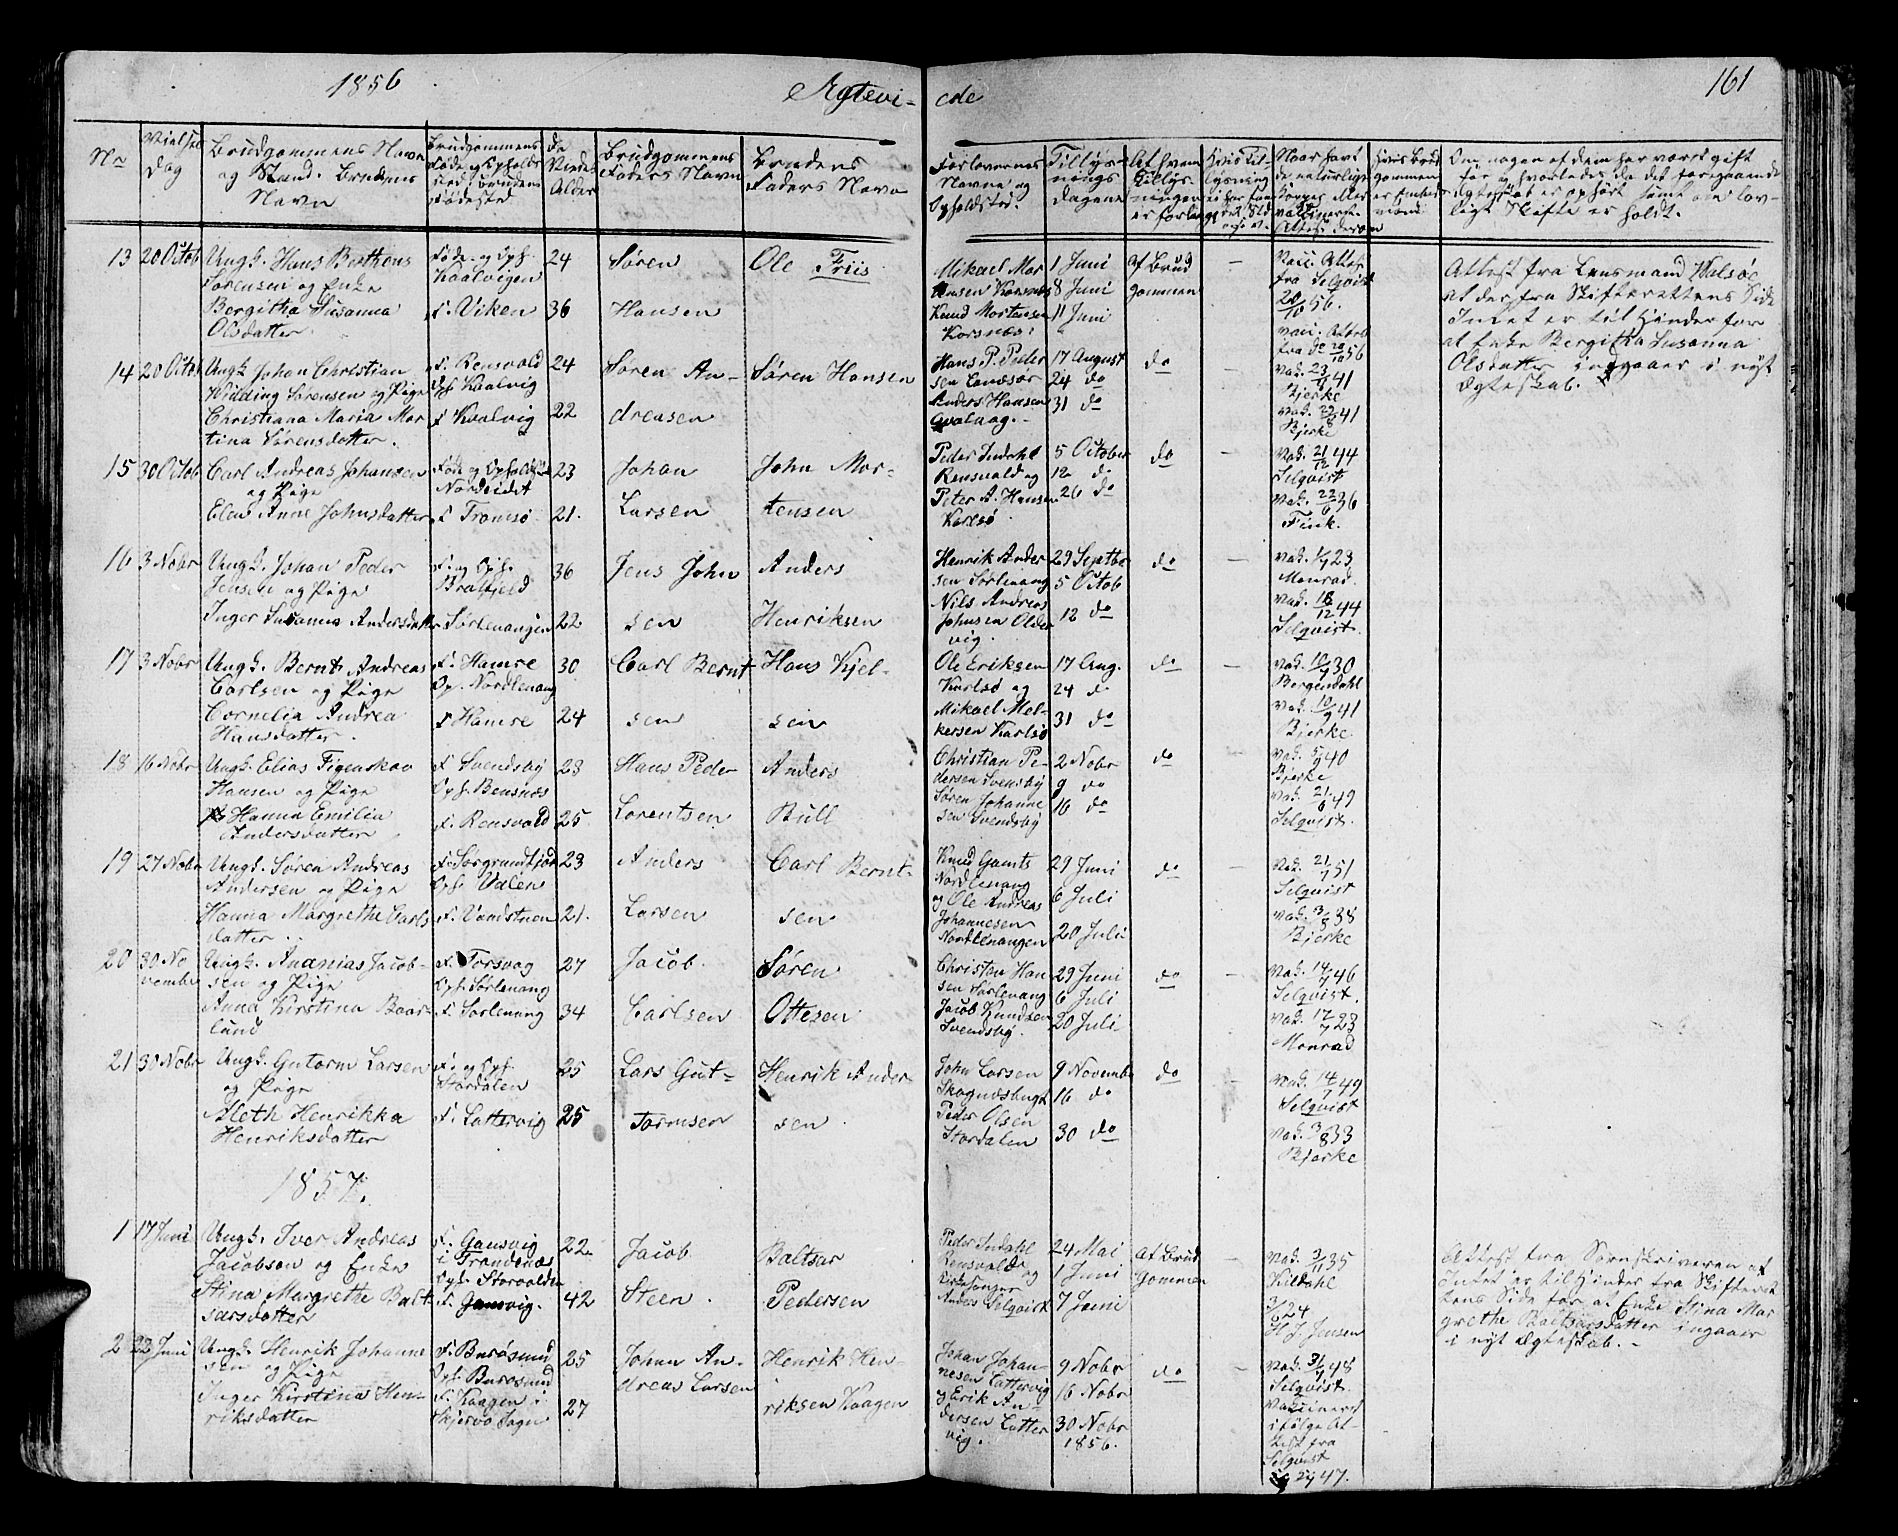 1856
Ægtevi-
ede
161
No
Vielses
Dag
Brudgommens Navn
og Stand. Brudens
Navn
Brudgommens
Føde og Opholds
sted. Brudens
Fødested
Alder
Brudgommens
Faders Navn
Brudens
Faders Navn
Forlovernes
Navne og
Opholdsted.
Tillys-
nings
dagene
Af hvem
Tillys-
ningen
er forlangt
13 20 Octob
Ungk. Hans Berthous
Sørensen og Enke
Bergitha Susanna
Olsdatter.
Føde- og Oph.
Kaalvigen
F. Viken
24
36
Søren
Hansen
Ole Friis
Mikael Mor
tensen Korsnes
Knud Mortensen
Korsnæs.
1 Juni
8 Juni
11 Juni
Af Brud
gommen
–
Vacc. Attest
fra Selqvist
20/10 56.
Vacc. Attest
fra do 20/10 56
Attest fra Lensmand Walsøe
at der fra Skifterettens Side
Intet er til Hinder for
at Enke Bergitha Susanna
Olsdatter indgaaer i nyt
Ægteskab.
14 20 Octob
Ungk. Johan Christian
Widding Sørensen og Pige
Christiana Maria Mar
tina Sørensdatter.
F. Rensvold
Oph. Kaalvig
F Kaalvig
24
22
Søren An-
dreasen
Søren Hansen
Hans P. Peder
sen
Anders Hansen
17 August
24 do
31 do
do
–
Vac. 23/8 41
Bjerke
Vac. 22/8 41
Bjerke
15 30 Octob
Carl Andreas Johansen
og Pige
Elen Anne Johnsdatter
Nordeidet
F Tromsø.
23
21.
Johan
Larsen
John Mor-
tensen
Peder Indahl
Rensvold og
Peter A. Hansen
Karlsø
5 October
12 do
26 do
do
Vac. 21/12 44
Selqvist
Vac. 22/6 36
Fink.
16 3 Nobr
Ungk. Johan Peder
Jensen og Pige
Inger Susanna Andersdatter
F. og Oph.
Bratfjeld
F Sørlenangen
36
22
Jens John
sen
Anders
Henriksen
Henrik Ander
sen Sørlenang
Nils Andreas
Johnsen Older
vig.
29 Septbr
5 Octob
12 do
do
–
Vac. 1/7 23
Monrad.
Vac. 18/12 44
Selqvist.
17 3 Nobr
Ungk. Bernt Andreas
Carlsen og Pige
Cornelia Andrea
Hansdatter.
F. Hamre
Oph. Nordlenang
F Hamre
30
24
Carl Bernt
sen
Hans Kjel-
sen
Ole Eriksen
Karlsø og
Mikael Mel-
kersen Karlsø
17 Aug.
24 do
31 do
do
–
Vac. 10/7 30
Bergendahl
Vac. 10/9 41
Bjerke
18 16 Nobr
Ungk. Elias Figenskov
Hansen og Pige
Hanna Emilia
Andersdatter
F Svendsby
Oph. Bensnæs
F. Rensvold
23
25
Hans Peder
Lorentsen
Anders
Bull
Christian Pe-
dersen Svensby
Søren Johanne
sen Svendsby
2 Nobr
9 do
16 do
do
Vac. 5/9 40
Bjerke
Vac. 21/6 49
Selqvist.
19 27 Nobr
Ungk. Søren Andreas
Andersen og Pige
Hanna Margrethe Carls
datter.
F. Sørgrundfjord
Oph. Valen
F. Vandstuen
23
21.
Anders
Larsen
Carl Bernt-
sen
Knud Gamts
Nordlenang
og Ole Andreas
Johannesen
Nordlenangen
29 Juni
6 Juli
20 Juli
do
–
Vac. 21/7 51
Selqvist
Vac. 3/8 38
Bjerke
20 30 No
vember
Ungk. Ananias Jacob-
sen og Pige
Anna Kirstina Baar-
lund
F. Torsvag
Oph. Sørlenang
F. Sørlenang
27
34
Jacob.
Carlsen
Søren
Ottesen
Christen Han
sen Sørlenang
Jacob Knudsen
Svendsby.
29 Juni
6 Juli
20 Juli
do
–
Vac. 14/7 46
Selqvist.
Vac. 17/7 23
Monrad
21 30 Nobr
Ungk. Gutorm Larsen
og Pige
Aleth Henrikka
Henriksdatter
F. og Oph.
Stordalen
F. Lattervig
25
25
Lars Gut-
tormsen
Henrik Ander-
sen
John Larsen
Skognæsbugt
Peder Olsen
Stordalen
9 Novembr
16 do
30 do
do
–
Vac. 14/7 49
Selqvist
Vac. 3/8 33
Bjerke
1857.
1 17 Juni
Ungk. Iver Andreas
Jacobsen og Enke
Stina Margrethe Balt
sarsdatter
F. Gansvig
i Trondenæs
Oph. Storvolden
F. Gansvig.
22
42
Jacob
Steen.
Baltsar
Pedersen
Peder Indahl
Rensvold og
Kirkesanger
Anders Selqvist
24 Mai
1 Juni
7 Juni
Af Brud
Gommen
–
Vac. 3/11 35
Kildahl
3/8 24
H. J. Jensen
Attest fra Sorenskriveren at
Intet er til Hinder fra Skifteret
tens Side for at Enke Stina Mar
grethe Baltsarsdatter ingaaer
i nyt Ægteskab. –
2 22 Juni
Ungk. Henrik Johanne
sen og Pige
Inger Kirstina Hen-
riksdatter
F. Burøsund
Oph. Burøsund
F. Kaagen i
Skjervø Sogn
25
27
Johan An-
dreas Larsen
Henrik Hen-
riksen Kaagen
Johan Johan-
nesen Lattervig
og Erik An-
dersen Latter
vig.
9 Nobr
16 Nobr
30 Nobr
1856.
do
–
Vac. 31/7 48
Selqvist.
Vaccineret
ifølge At-
test fra
Selqvist